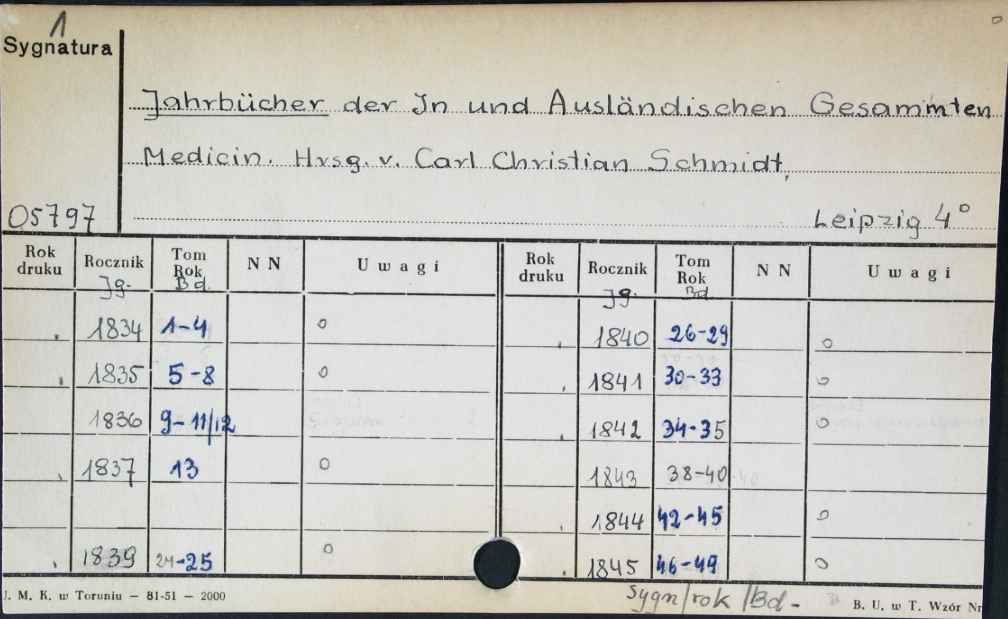 1
Sygnatura
Jahrbücher der In und Ausländischen Gesammten
Medicin. Hrsg. v. Carl Christian Schmidt,
05797 Leipzig 4°
Rok druku Rocznik Tom Rok N N Uwagi Rok druku Rocznik Tom Rok N N Uwagi
Jg. Bd. Jg. Bd.
1834 1-4 o 1840 26-29 o
1835 5-8 o 1841 30-33 o
1836 9-11/12 1842 34-35 o
1837 13 o 1843 38-40
1844 42-45 o
1839 24-25 o 1845 46-49 o
J. M. K. w Toruniu — 81-51 — 2000
Sygn/rok/Bd-
B. U. w T. Wzór Nr